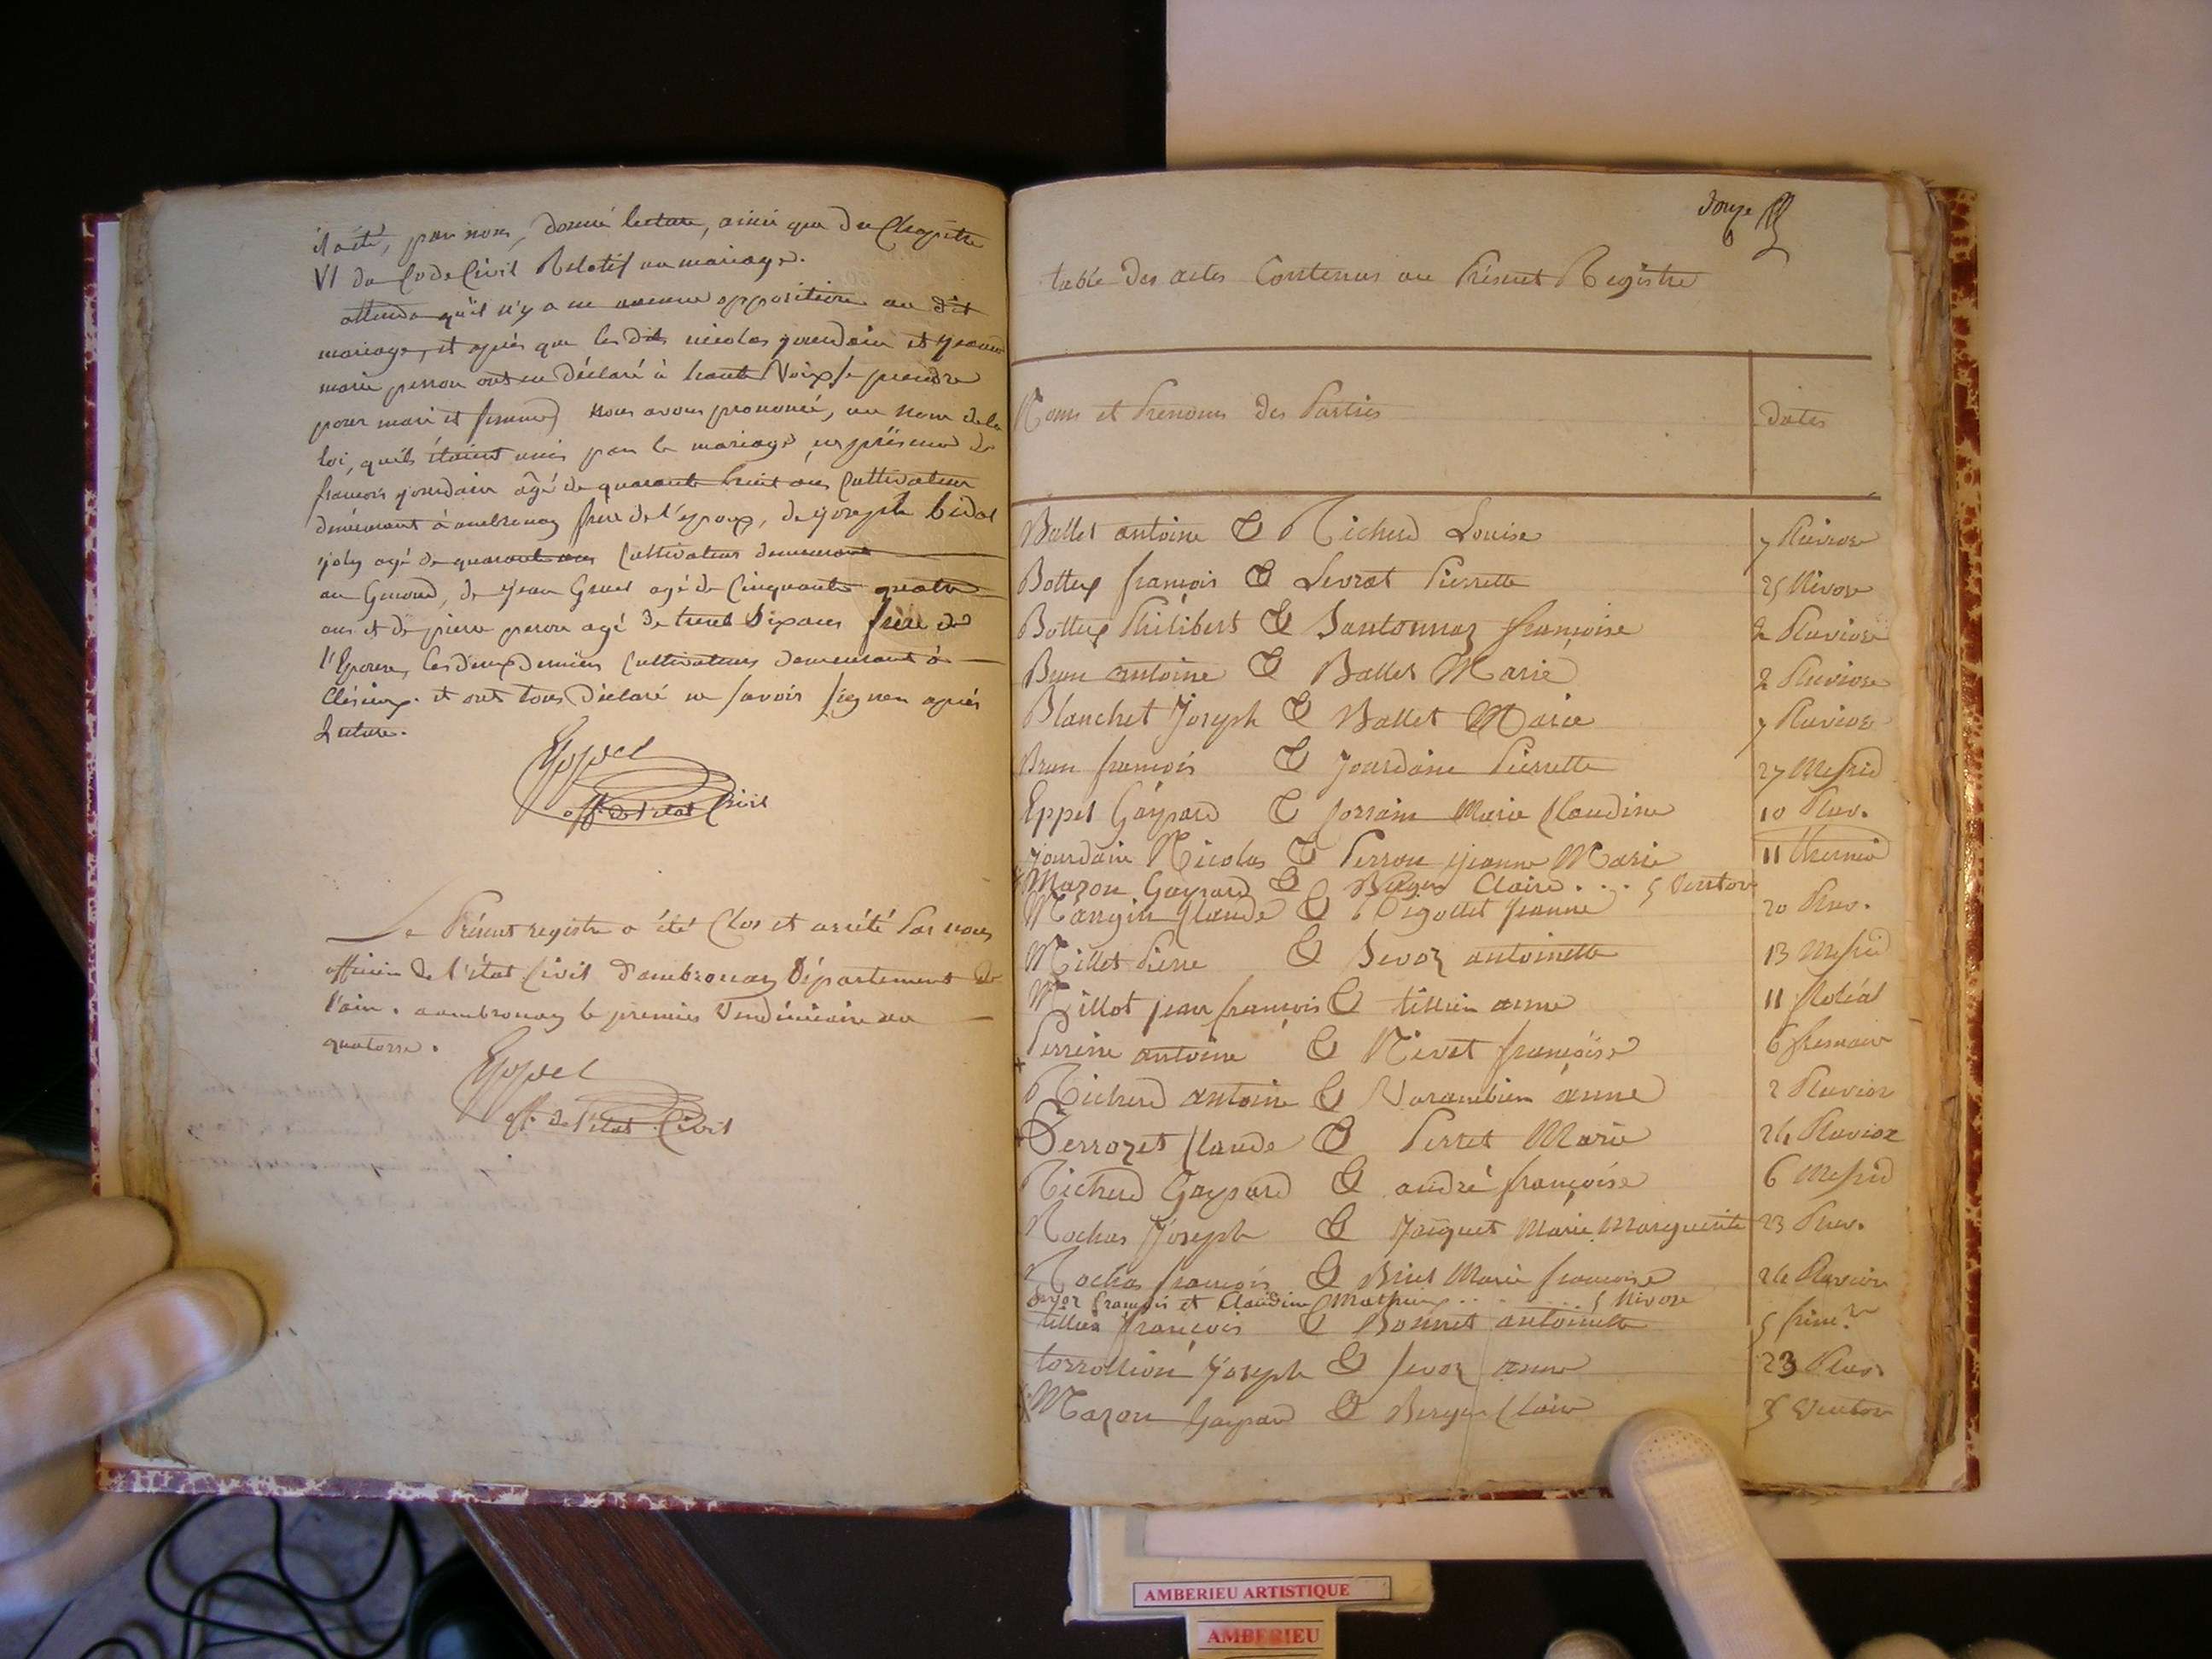 il a été, par nous, donné lecture, ainsi que du Chapitre
VI du Code Civil Relatif au mariage.
attendu qu'il n'y a eu aucune opposition au dit
mariage, et après que les dits nicolas jourdain et jeanne
marie perron ont eu déclaré à haute Voix se prendre
pour mari et femme, nous avons prononcé, au nom de la
loi, qu'ils étaient unis par le mariage, en présence de
françois jourdain âgé de quarante huit ans Cultivateur
demeurant à ambronay frere de l'epoux, de joseph bidal
joly agé de quarante ans Cultivateur demeurant
au Genoud, de jean Gruel agé de Cinquante quatre
ans et de pierre peron agé de trente Six ans frere de
l'Epouse, les deux derniers Cultivateurs demeurant à
et ont tous déclaré ne savoir signer après
Lecture.
Eppel
off. de l'etat Civil
Le Présent registre a été Clos et arrété Par nous
officier de l'état Civil d'ambronay Département de
l'ain. a ambronay le premier Vendémiaire an
quatorze.
Eppel
off. de l'etat Civil
douze
table des actes Contenus au Présent Registre
Noms et Prenoms des Parties dates
Ballet antoine & Richerd Louise 7 Pluviose
Bottex françois & Levrat Pierrette 25 Nivose
Bottex Philibert & Santonnaz françoise 2 Pluviose
Brun antoine & Ballet Marie 2 Pluviose
Blanchet Joseph & Ballet Marie 7 Pluviose
Brun françois & Jourdain Pierrette 27 Messid
Eppel Gaspard & Marie Claudine 10 Pluv.
Jourdain Nicolas & Perron jeanne Marie 11 thermid
Mazon Gaspard & Berger Claire . . . 5 Ventose
Mangin Claude & Rigollet Jeanne 20 Pluv.
Millet Pierre & Sevoz antoinette 13 Messid
Millot jean françois & tillier anne 11 floréal
Perrine antoine & Nivet françoise 6 frimaire
Richerd antoine & Varambien anne 2 Pluviose
Serrozet Claude & Perret Marie 24 Pluviose
Richerd Gaspard & andré françoise 6 Messid
Rochas Joseph & Jaiquet Marie Marguerite 23 Pluv.
Rochas françois & Briel Marie françoise 24 Pluviose
Sevoz françois et Claudine Mathieu . . . 5 Nivose
tillier françois & Bonnet antoinette 5 frim.re
torrollion Joseph & Sevoz anne 23 Pluv.
Mazon Gaspard & Berger Claire 5 Ventose
AMBERIEU ARTISTIQUE
AMBERIEU